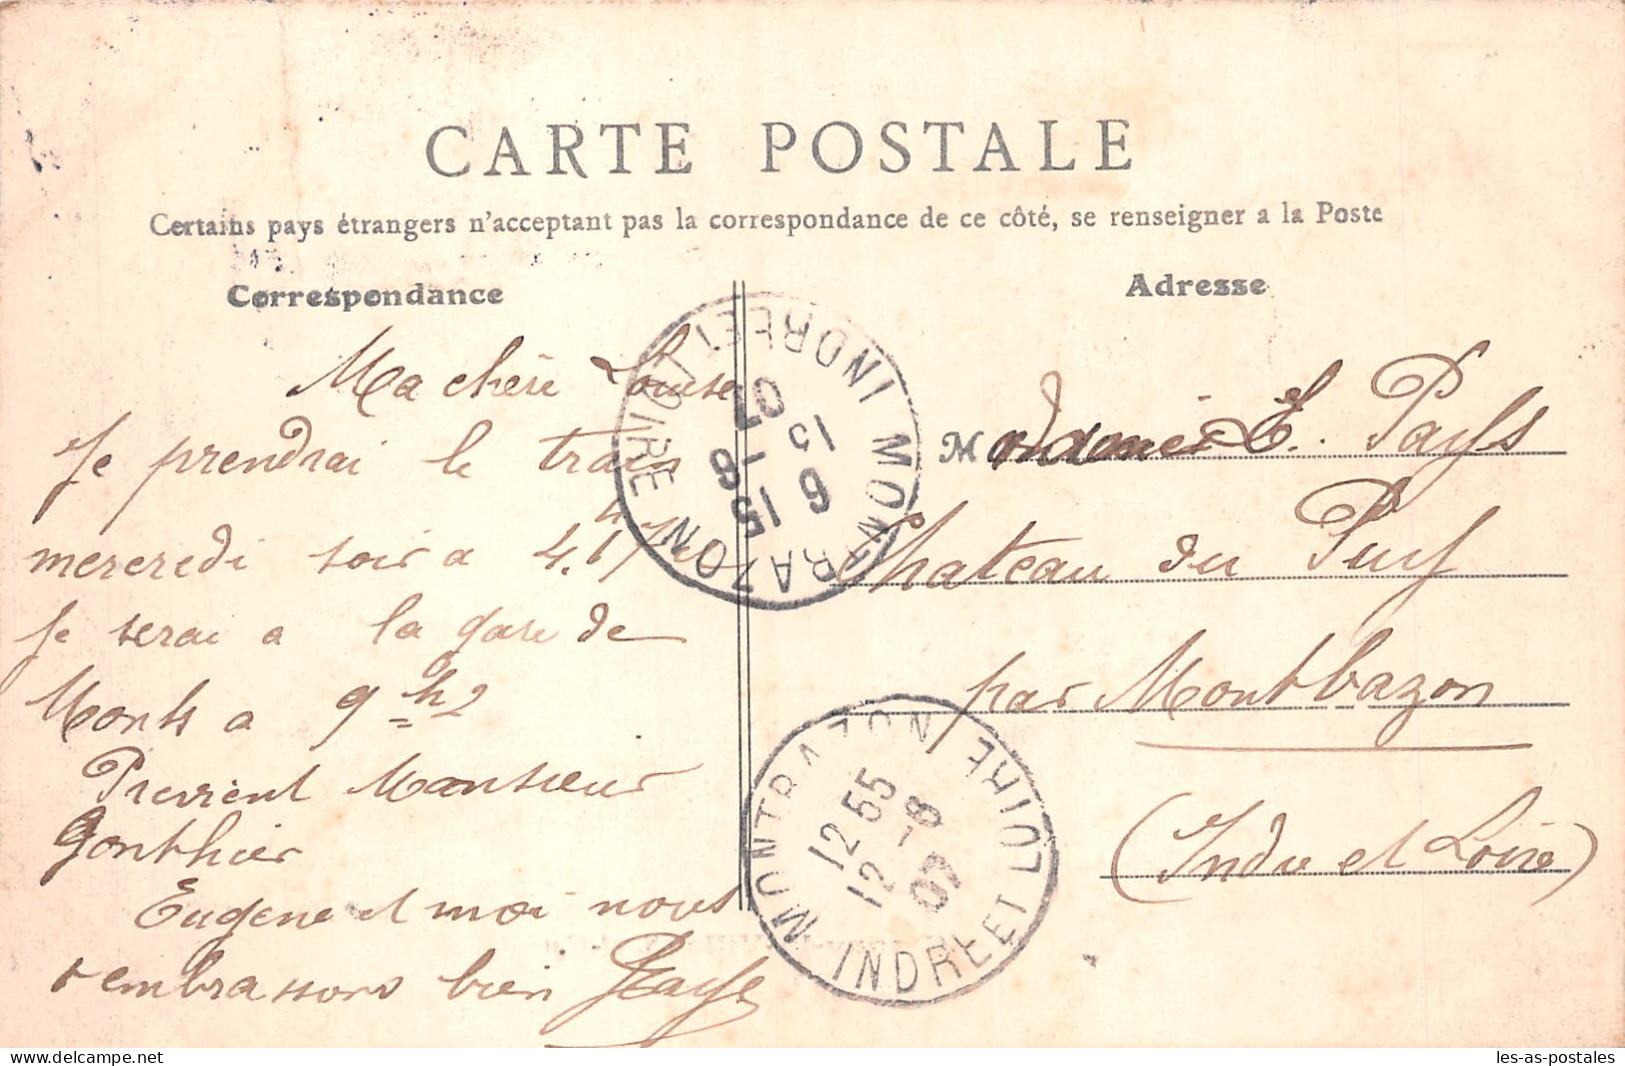 CARTE POSTALE
Certains pays étrangers n'acceptant pas la correspondance de ce côté, se renseigner a la Poste
Correspondance
Ma chère Louise
Je prendrai le train
mercredi soir a 4.47
Je serai a la gare de
Monts a 9 h 2
Previent Monsieur
Gonthier
Eugene et moi nous
t embrassons bien
Adresse
M adame E. Pays
Chateau du Puy
par Montbazon
(Indre et Loire)
MONTBAZON INDRE ET LOIRE
6 15
15 -6
07
MONTBAZON INDRE ET LOIRE
12 55
12 -6
07
delcampe.net
les-as-postales